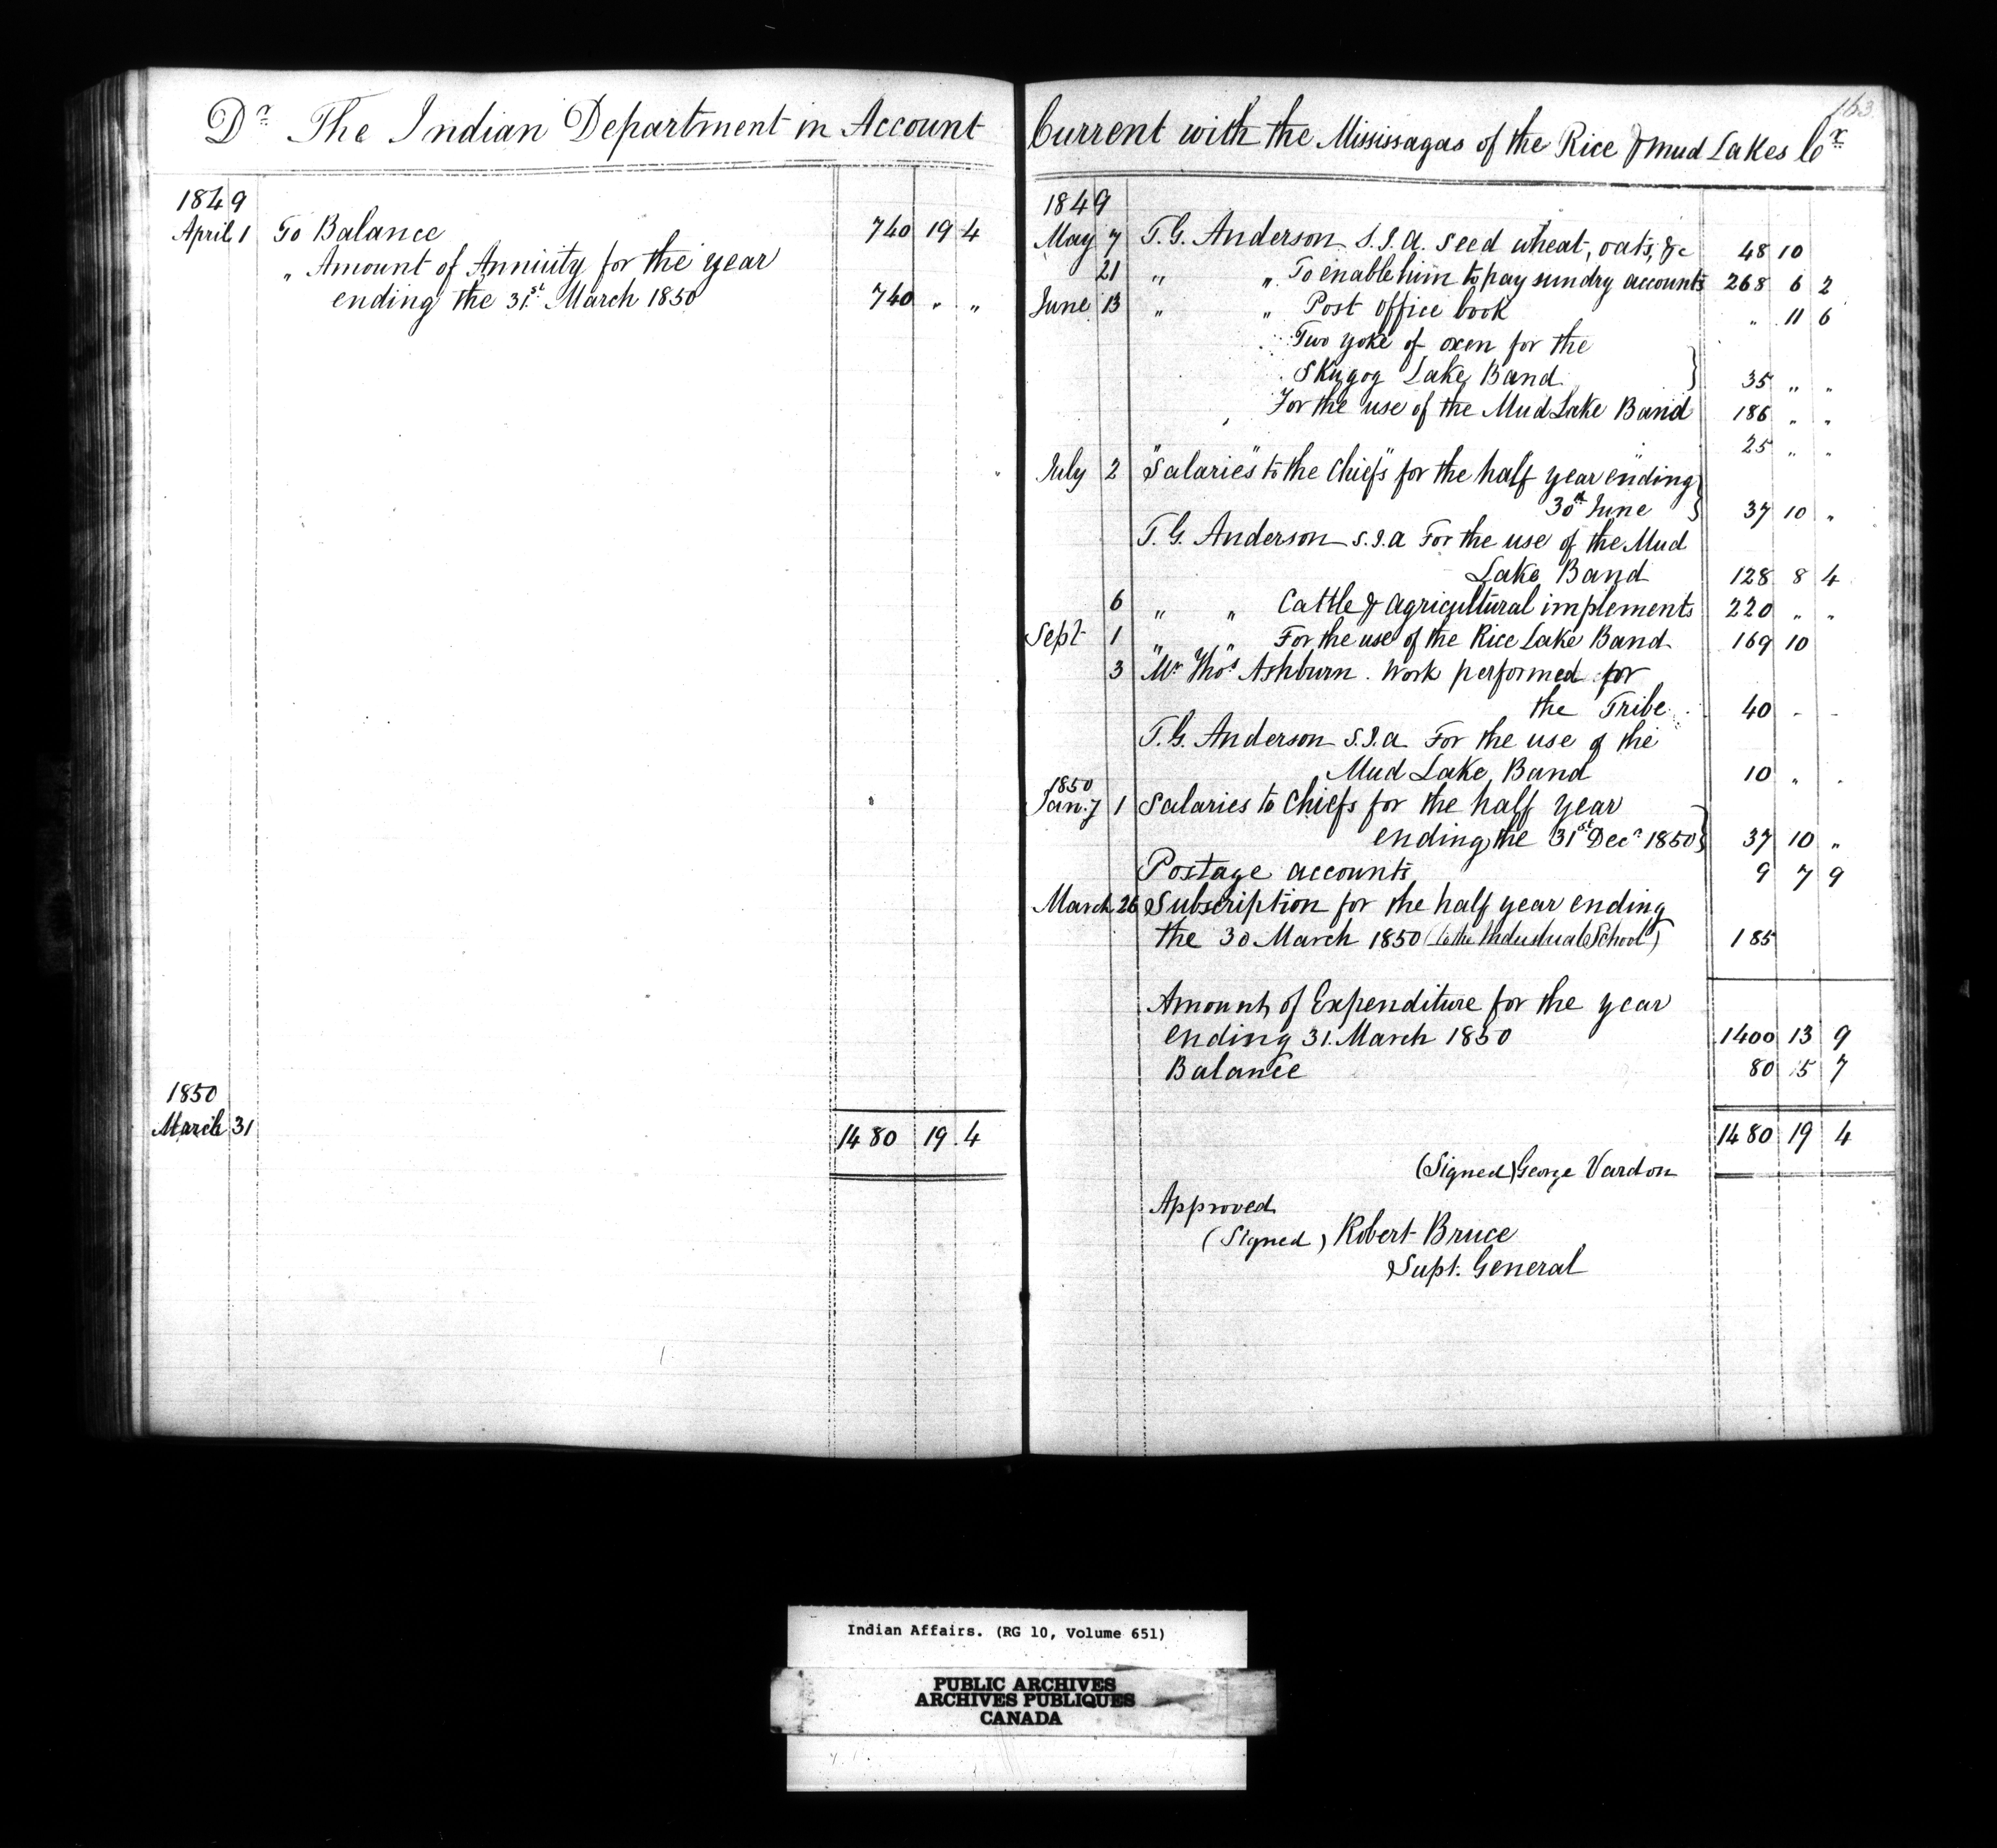 Dr. The Indian Department in Account
1849
April 1 To Balance 740 19 4
" Amount of Annuity for the year
ending the 31st March 1850 740 " "
1850
March 31 1480 19 4
163
Current with the Mississagas of the Rice & Mud Lakes Cr.
1849
May 7 T. G. Anderson S.I.A. seed wheat, oats, &c 48 10
21 " " To enable him to pay sundry accounts 268 6 2
June 13 " " Post office book " 11 6
Two yoke of oxen for the
Skugog Lake Band 35 " "
For the use of the Mud Lake Band 186 " "
" " " 25 " "
July 2 Salaries to the Chiefs for the half year ending
30th June 37 10 "
T. G. Anderson S.I.A For the use of the Mud
Lake Band 128 8 4
6 " " Cattle & agricultural implements 220 " "
Sept 1 " " For the use of the Rice Lake Band 169 10
3 Mr Thos Ashburn. Work performed for
the Tribe 40 - -
T. G. Anderson S.I.A For the use of the
Mud Lake Band 10 " "
1850
Jany 1 Salaries to Chiefs for the half year
ending the 31st Decr 1850 37 10 "
Postage accounts 9 7 9
March 26 Subscription for the half year ending
the 30 March 1850 (to the Industrial School) 185
Amount of Expenditure for the year
ending 31. March 1850 1400 13 9
Balance 80 5 7
1480 19 4
(Signed) George Vardon
Approved
(Signed) Robert Bruce
Supt. General
Indian Affairs. (RG 10, Volume 651)
PUBLIC ARCHIVES
ARCHIVES PUBLIQUES
CANADA